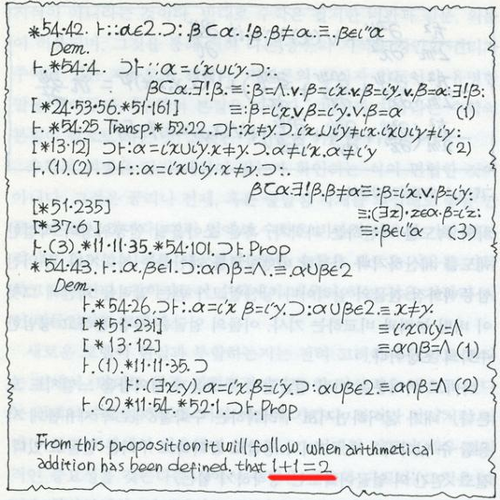 *54·42. ⊢::α∈2.⊃:. β⊂α.∃!β.β≠α.≡.β∈ι“α
Dem.
⊢.*54·4. ⊃⊢::α=ι‘x∪ι‘y.⊃:.
β⊂α.∃!β.≡:β=Λ.v.β=ι‘x.v.β=ι‘y.v.β=α:∃!β:
[*24·53·56.*51·161] ≡:β=ι‘x.v.β=ι‘y.v.β=α (1)
⊢.*54·25.Transp.*52·22.⊃⊢:x≠y.⊃.ι‘x∪ι‘y≠ι‘x.ι‘x∪ι‘y≠ι‘y:
[*13·12] ⊃⊢:α=ι‘x∪ι‘y.x≠y.⊃.α≠ι‘x.α≠ι‘y (2)
⊢.(1).(2).⊃⊢::α=ι‘x∪ι‘y.x≠y.⊃:.
β⊂α.∃!β.β≠α.≡:β=ι‘x.v.β=ι‘y:
[*51·235] ≡:(∃z).z∈α.β=ι‘z:
[*37·6] ≡:β∈ι“α (3)
⊢.(3).*11·11·35.*54·101.⊃⊢.Prop
*54·43.⊢:.α,β∈1.⊃:α∩β=Λ.≡.α∪β∈2
Dem.
⊢.*54·26.⊃⊢:.α=ι‘x.β=ι‘y.⊃:α∪β∈2.≡.x≠y.
[*51·231] ≡.ι‘x∩ι‘y=Λ
[*13·12] ≡.α∩β=Λ (1)
⊢.(1).*11·11·35.⊃
⊢:.(∃x,y).α=ι‘x.β=ι‘y.⊃:α∪β∈2.≡.α∩β=Λ (2)
⊢.(2).*11·54.*52·1.⊃⊢.Prop
From this proposition it will follow, when arithmetical
addition has been defined, that 1+1=2